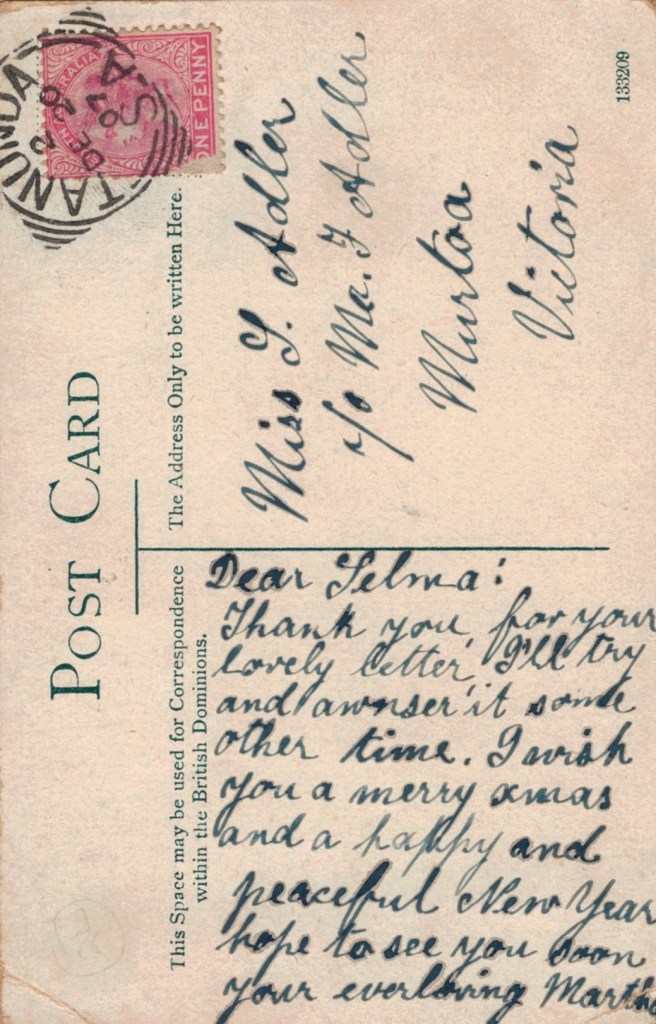 POST CARD
This Space may be used for Correspondence
within the British Dominions.
The Address Only to be written Here.
TANUNDA
DE 20
07
S-A
ONE PENNY
133209
Miss S. Adler
c/o Mr. F Adler
Murtoa
Victoria
Dear Selma:
Thank you, for your
lovely letter, I'll try
and awnser it some
other time. I wish
you a merry xmas
and a happy and
peaceful New Year
hope to see you soon
your everloving